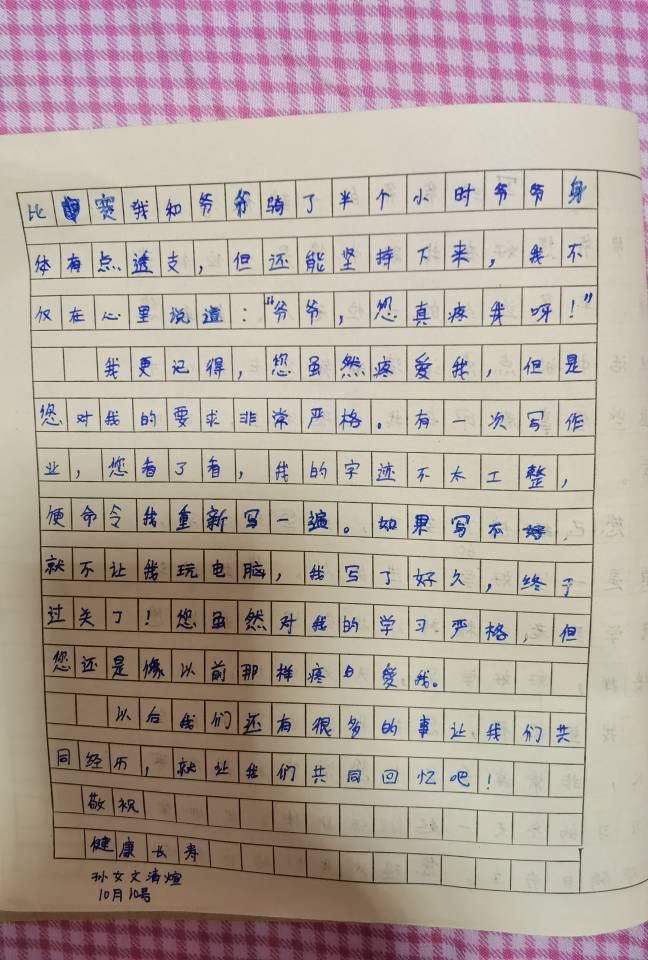 比赛我和爷爷骑了半个小时爷爷身
体有点透支，但还能坚持下来，我不
仅在心里说道：“爷爷，您真疼我呀！”
我更记得，您虽然疼爱我，但是
您对我的要求非常严格。有一次写作
业，您看了看，我的字迹不太工整，
便命令我重新写一遍。如果写不好，
就不让我玩电脑，我写了好久，终于
过关了！您虽然对我的学习严格，但
您还是像以前那样疼爱我。
以后我们还有很多的事让我们共
同经历，就让我们共同回忆吧！
敬祝
健康长寿
孙女文清煊
10月10号